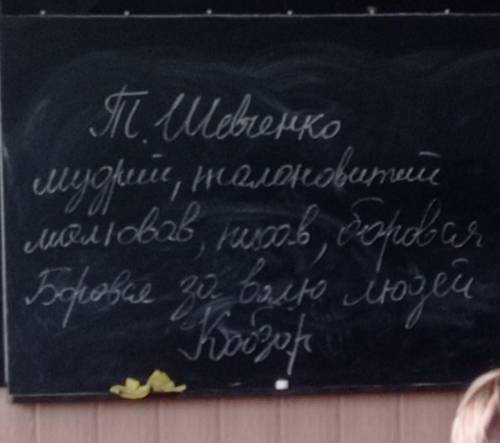 Т. Шевченко
мудрий, талановитий
малював, писав, боровся
Боровся за волю людей
Кобзар